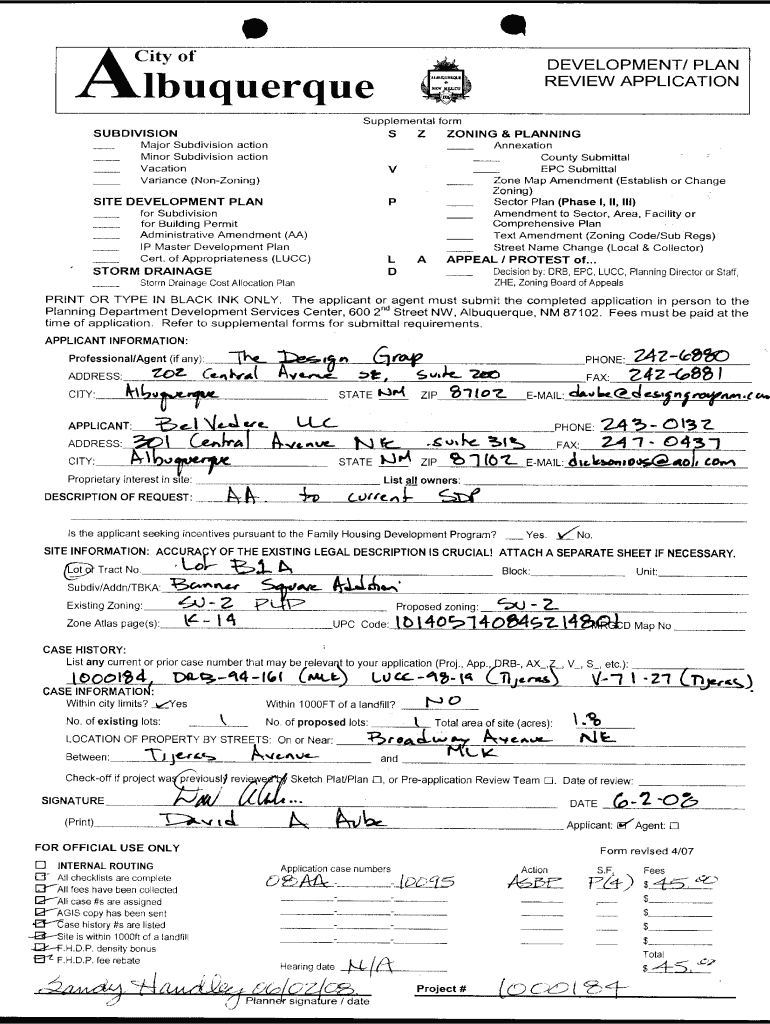 City of
Albuquerque
ALBUQUERQUE
NEW MEXICO
DEVELOPMENT/ PLAN
REVIEW APPLICATION
Supplemental form
SUBDIVISION S Z ZONING & PLANNING
Major Subdivision action Annexation
Minor Subdivision action County Submittal
Vacation V EPC Submittal
Variance (Non-Zoning) Zone Map Amendment (Establish or Change
Zoning)
SITE DEVELOPMENT PLAN P Sector Plan (Phase I, II, III)
for Subdivision Amendment to Sector, Area, Facility or
for Building Permit Comprehensive Plan
Administrative Amendment (AA) Text Amendment (Zoning Code/Sub Regs)
IP Master Development Plan Street Name Change (Local & Collector)
Cert. of Appropriateness (LUCC) L A APPEAL / PROTEST of...
STORM DRAINAGE D Decision by: DRB, EPC, LUCC, Planning Director or Staff,
Storm Drainage Cost Allocation Plan ZHE, Zoning Board of Appeals
PRINT OR TYPE IN BLACK INK ONLY. The applicant or agent must submit the completed application in person to the
Planning Department Development Services Center, 600 2nd Street NW, Albuquerque, NM 87102. Fees must be paid at the
time of application. Refer to supplemental forms for submittal requirements.
APPLICANT INFORMATION:
Professional/Agent (if any): The Design Group PHONE: 242-6880
ADDRESS: 202 Central Avenue SE, Suite 200 FAX: 242-6881
CITY: Albuquerque STATE NM ZIP 87102 E-MAIL: daube@designgroupnm.com
APPLICANT: Bel Vedere LLC PHONE: 243-0132
ADDRESS: 301 Central Avenue NE Suite 313 FAX: 247-0437
CITY: Albuquerque STATE NM ZIP 87102 E-MAIL: dicksonious@aol.com
Proprietary interest in site: List all owners:
DESCRIPTION OF REQUEST: AA to current SDP
Is the applicant seeking incentives pursuant to the Family Housing Development Program? Yes. ✓ No.
SITE INFORMATION: ACCURACY OF THE EXISTING LEGAL DESCRIPTION IS CRUCIAL! ATTACH A SEPARATE SHEET IF NECESSARY.
Lot or Tract No. Lot B1A Block: Unit:
Subdiv/Addn/TBKA: Banner Square Addition
Existing Zoning: SU-2 PUD Proposed zoning: SU-2
Zone Atlas page(s): K-14 UPC Code: MRGCD Map No
CASE HISTORY:
List any current or prior case number that may be relevant to your application (Proj., App., DRB-, AX_,Z_, V_, S_, etc.):
1000184, DRB-94-161 (MLK) LUCC-98-19 (Tijeras) V-71-27 (Tijeras)
CASE INFORMATION:
Within city limits? ✓ Yes Within 1000FT of a landfill? NO
No. of existing lots: 1 No. of proposed lots: 1 Total area of site (acres): 1.8
LOCATION OF PROPERTY BY STREETS: On or Near: Broadway Avenue NE
Between: Tijeras Avenue and MLK
Check-off if project was previously reviewed by Sketch Plat/Plan ☐, or Pre-application Review Team ☐. Date of review:
SIGNATURE DATE 6-2-08
(Print) David A Aube Applicant: ☑ Agent: ☐
FOR OFFICIAL USE ONLY Form revised 4/07
☐ INTERNAL ROUTING Application case numbers Action S.F. Fees
☑ All checklists are complete 08AA - 10095 ASBP P(4) $ 45.00
☑ All fees have been collected - - $
☑ All case #s are assigned - - $
☑ AGIS copy has been sent - - $
☑ Case history #s are listed - - $
☑ Site is within 1000ft of a landfill
☑ F.H.D.P. density bonus Total
☑ F.H.D.P. fee rebate Hearing date N/A $ 45.00
Sandy Handley 06/02/08 Project # 1000184
Planner signature / date